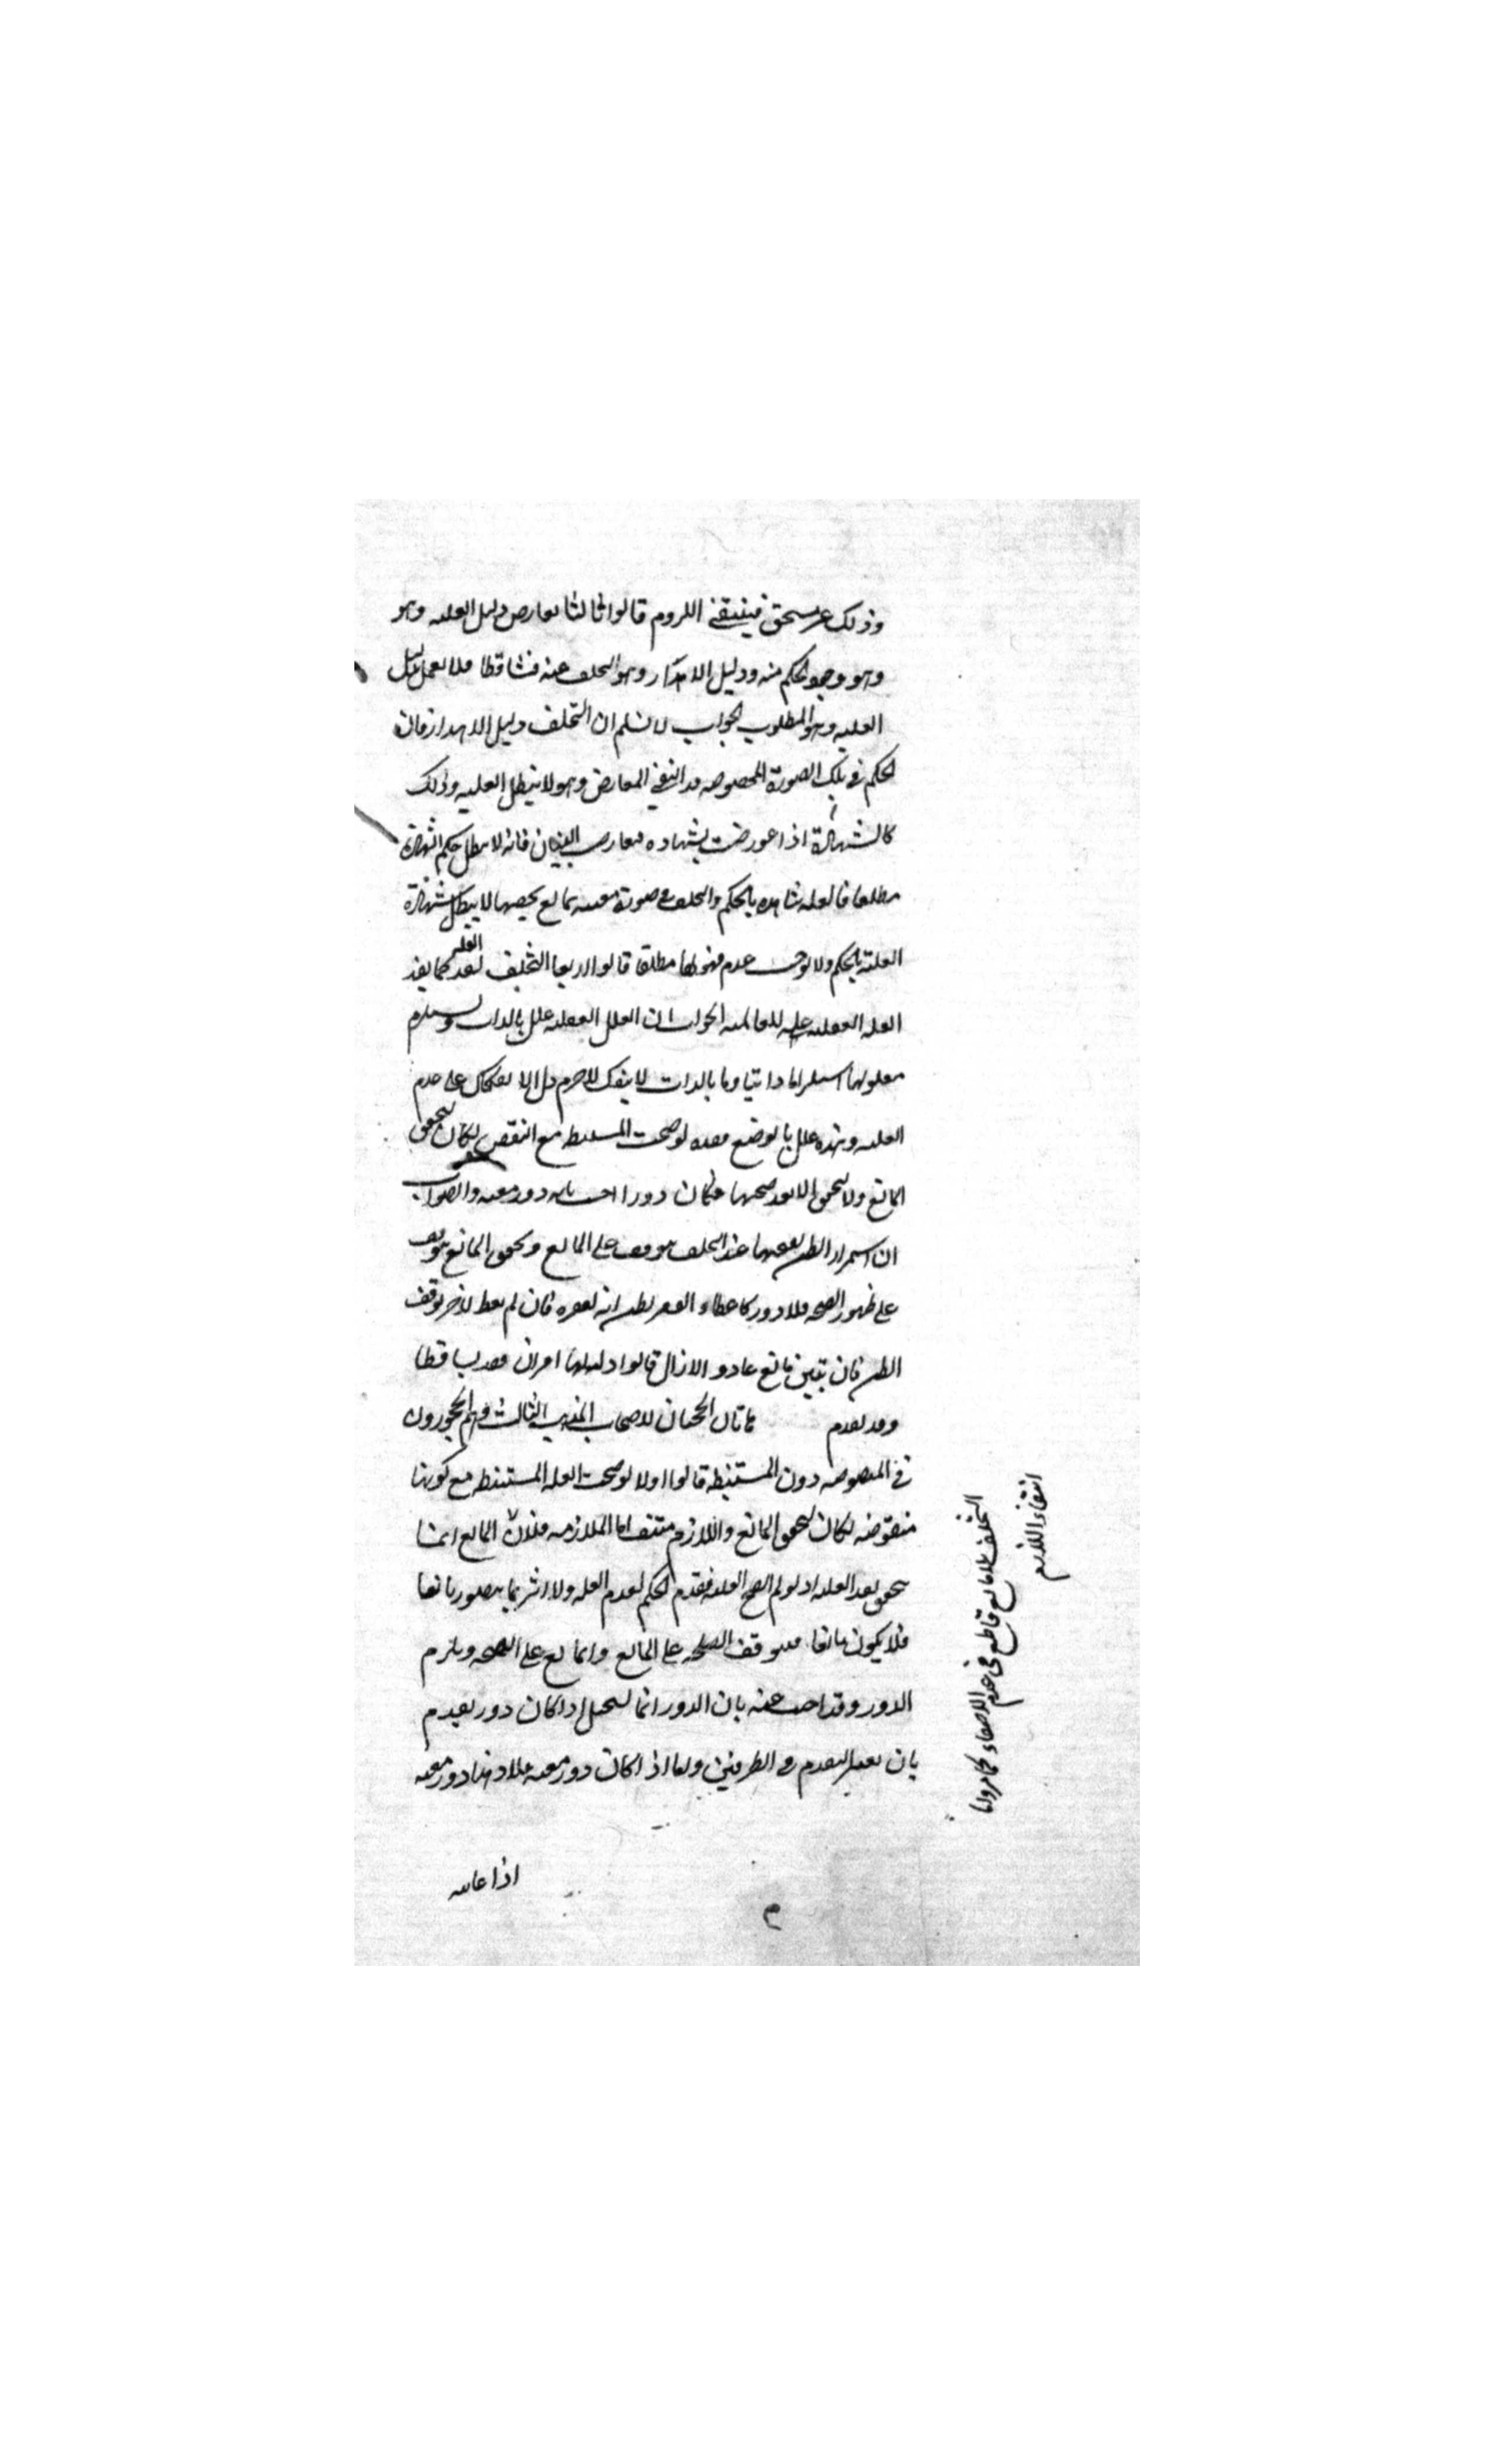 وذلك غير متحقق فينتفي اللزوم قالوا ثالثا تعارض دليل العلية وهو
وهو وجود الحكم منه ودليل الاهدار وهو التخلف عنه فتساقطا فلا يعمل بدليل
العلية وهو المطلوب الجواب لا نسلم ان التخلف دليل الاهدار فان
الحكم في تلك الصورة المخصوصة انتفى المعارض وهو لا يبطل العلية وذلك
كالشهادة اذا عورضت بشهادة البينتان فانه لا يبطل حكم الشهادة
مطلقا فالعلة شاهدة بالحكم والتخلف في صورة معينة لمانع يخصها لا يبطل شهادة
العلة بالحكم ولا يوجب عدم قبولها مطلقا قالوا رابعا التخلف يفسد العلة كما يفسد
العلة العقلية الجواب ان العلل العقلية علل بالذات وتستلزم
معلولها استلزاما ذاتيا وما بالذات لا ينفك لا جرم دل الانفكاك على عدم
العلية وهذه علل بالوضع لو صحت المستنبطة مع النقض لكان لتحقق
المانع ولا يتحقق الا بعد صحتها فكان دورا اجيب بانه دور معية والصواب
ان استمرار الظن بصحتها عند التخلف موقوف على المانع وتحقق المانع موقوف
على ظهور الصحة فلا دور كاعطاء الفقير يظن انه لفقره فان لم يعط لاخر توقف
الظن فان تبين مانع عاد والا زال قالوا دليلها اقتران فقد تساقطا
وقد تقدم لاصحاب المذهب الثالث وهم المجوزون
في المنصوصة دون المستنبطة قالوا اولا لو صحت العلة المستنبطة مع كونها
منقوضة لكان لتحقق المانع واللازم منتف اما الملازمة فلان المانع انما
يتحقق بعد العلة اذ لو لم تصح العلة فعدم الحكم لعدم العلة ولا اثر لما يتصور مانعا
فلا يكون مانعا فتتوقف الصحة على المانع والمانع على الصحة ويلزم
الدور وقد اجيب عنه بان الدور انما يستحيل اذا كان دور تقدم
بان يعتبر التقدم في الطرفين واما اذا كانت دور معية فلا وهذا دور معية
اذا غايته
التخلف بلا مانع قاطع في عدم الاقتضاء
انتفاء اللازم